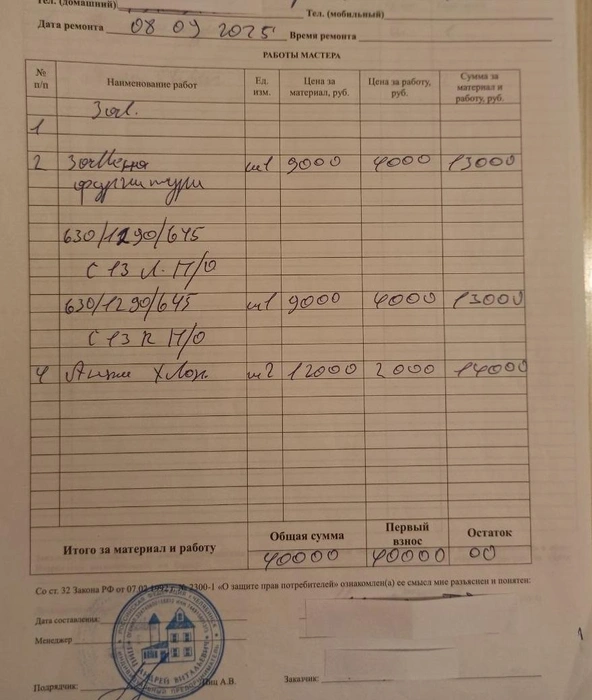 Тел. (домашний)
Тел. (мобильный)
Дата ремонта 08 09 2025 Время ремонта
РАБОТЫ МАСТЕРА
№ п/п Наименование работ Ед. изм. Цена за материал, руб. Цена за работу, руб. Сумма за материал и работу, руб.
1
2 Замена шт 9000 4000 13000
фурнитуры
630/1290/645
С 13 Л. П/О
630/1290/645 шт 9000 4000 13000
С 13 R П/О
4 хлоп. шт 2 12000 2000 14000
Итого за материал и работу Общая сумма Первый взнос Остаток
40000 40000 00
Со ст. 32 Закона РФ от 07.02.1992 г. № 2300-1 «О защите прав потребителей» ознакомлен(а) ее смысл мне разъяснен и понятен:
Дата составления:
Менеджер
Подрядчик: А.В. Заказчик: